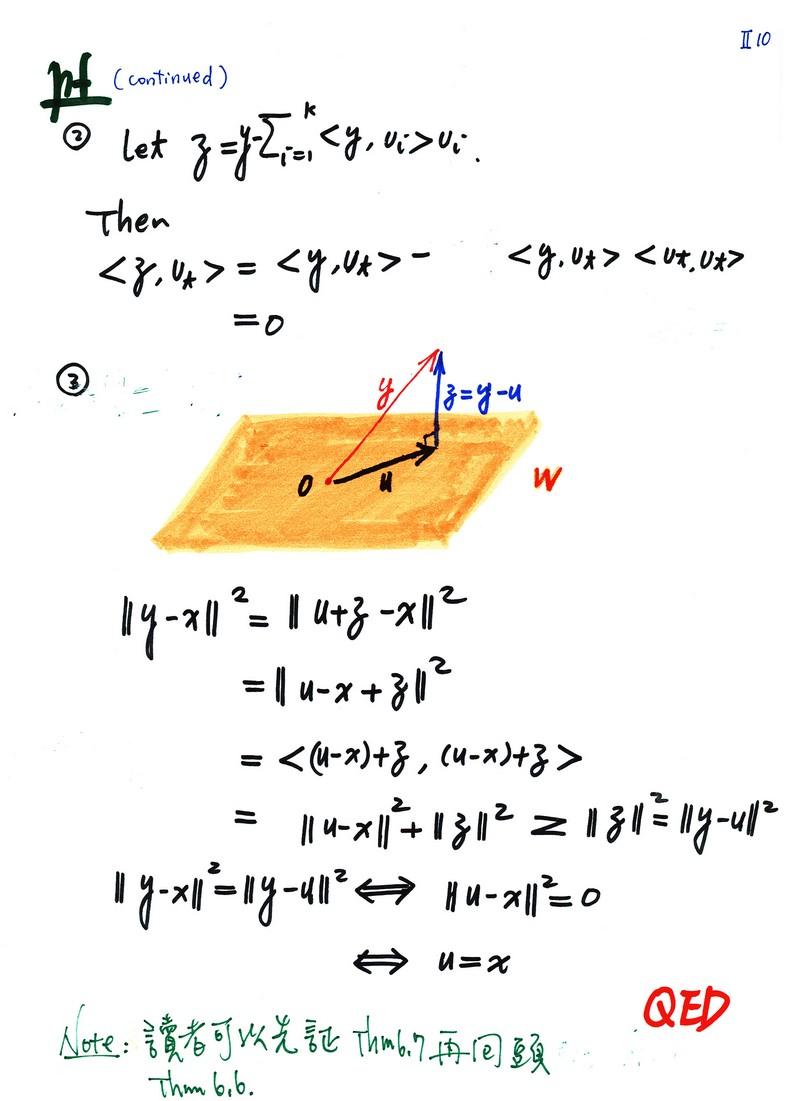 II 10
pf (continued)
② Let z = y - ∑_{i=1}^{k} <y, u_i> u_i.
Then
<z, u_*> = <y, u_*> - <y, u_*> <u_*, u_*>
= 0
③
y
z = y - u
0
u
W
‖y-x‖² = ‖u+z-x‖²
= ‖u-x+z‖²
= <(u-x)+z, (u-x)+z>
= ‖u-x‖² + ‖z‖² ≥ ‖z‖² = ‖y-u‖²
‖y-x‖² = ‖y-u‖² ⟺ ‖u-x‖² = 0
⟺ u = x
QED
Note: 讀者可以先証 Thm 6.7 再回頭
Thm 6.6.